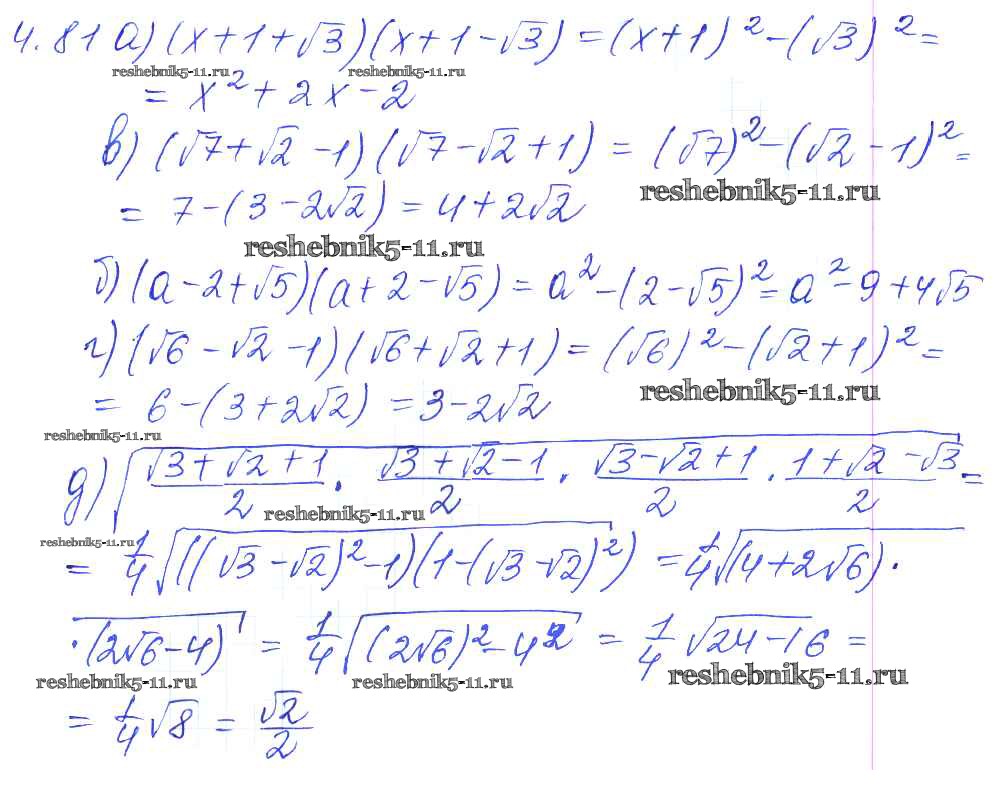 4.81 а) (x+1+√3)(x+1-√3) = (x+1)²-(√3)² =
reshebnik5-11.ru reshebnik5-11.ru
= x²+2x-2
в) (√7+√2-1)(√7-√2+1) = (√7)²-(√2-1)² =
reshebnik5-11.ru
= 7-(3-2√2) = 4+2√2
reshebnik5-11.ru
б) (a-2+√5)(a+2-√5) = a²-(2-√5)² = a²-9+4√5
г) (√6-√2-1)(√6+√2+1) = (√6)²-(√2+1)² =
reshebnik5-11.ru
= 6-(3+2√2) = 3-2√2
reshebnik5-11.ru
д) √((√3+√2+1)/2 · (√3+√2-1)/2 · (√3-√2+1)/2 · (1+√2-√3)/2) =
reshebnik5-11.ru
reshebnik5-11.ru
= 1/4 √(((√3-√2)²-1)(1-(√3-√2)²)) = 1/4 √((4+2√6)·
·(2√6-4)) = 1/4 √((2√6)²-4²) = 1/4 √24-16 =
reshebnik5-11.ru reshebnik5-11.ru reshebnik5-11.ru
= 1/4 √8 = √2/2